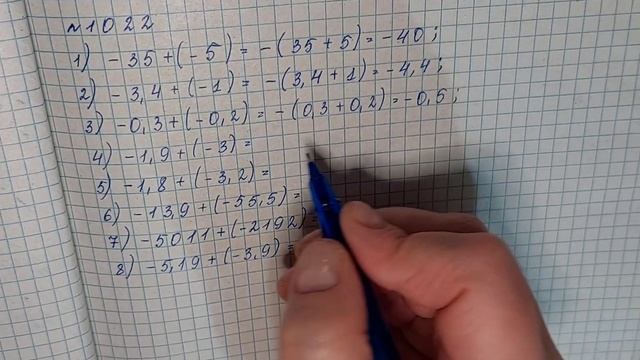 №1022
1) -35+(-5) = -(35+5) = -40;
2) -3,4+(-1) = -(3,4+1) = -4,4;
3) -0,3+(-0,2) = -(0,3+0,2) = -0,5;
4) -1,9+(-3) =
5) -1,8+(-3,2) =
6) -13,9+(-55,5) =
7) -5011+(-2192) =
8) -5,19+(-3,9) =